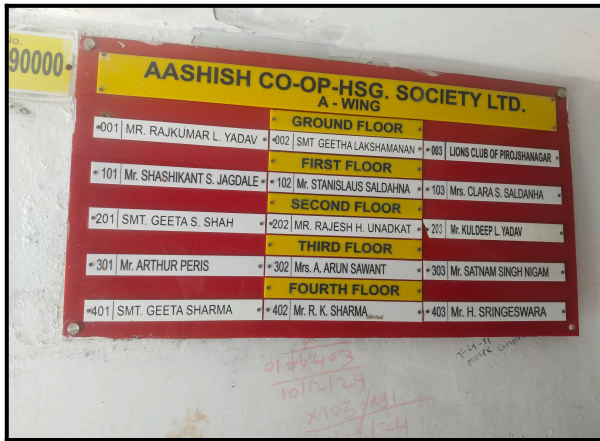 No.
90000
AASHISH CO-OP-HSG. SOCIETY LTD.
A - WING
GROUND FLOOR
001 MR. RAJKUMAR L. YADAV 002 SMT GEETHA LAKSHAMANAN 003 LIONS CLUB OF PIROJSHANAGAR
FIRST FLOOR
101 Mr. SHASHIKANT S. JAGDALE 102 Mr. STANISLAUS SALDAHNA 103 Mrs. CLARA S. SALDANHA
SECOND FLOOR
201 SMT. GEETA S. SHAH 202 MR. RAJESH H. UNADKAT 203 Mr. KULDEEP L. YADAV
THIRD FLOOR
301 Mr. ARTHUR PERIS 302 Mrs. A. ARUN SAWANT 303 Mr. SATNAM SINGH NIGAM
FOURTH FLOOR
401 SMT. GEETA SHARMA 402 Mr. R. K. SHARMA 403 Mr. H. SRINGESWARA